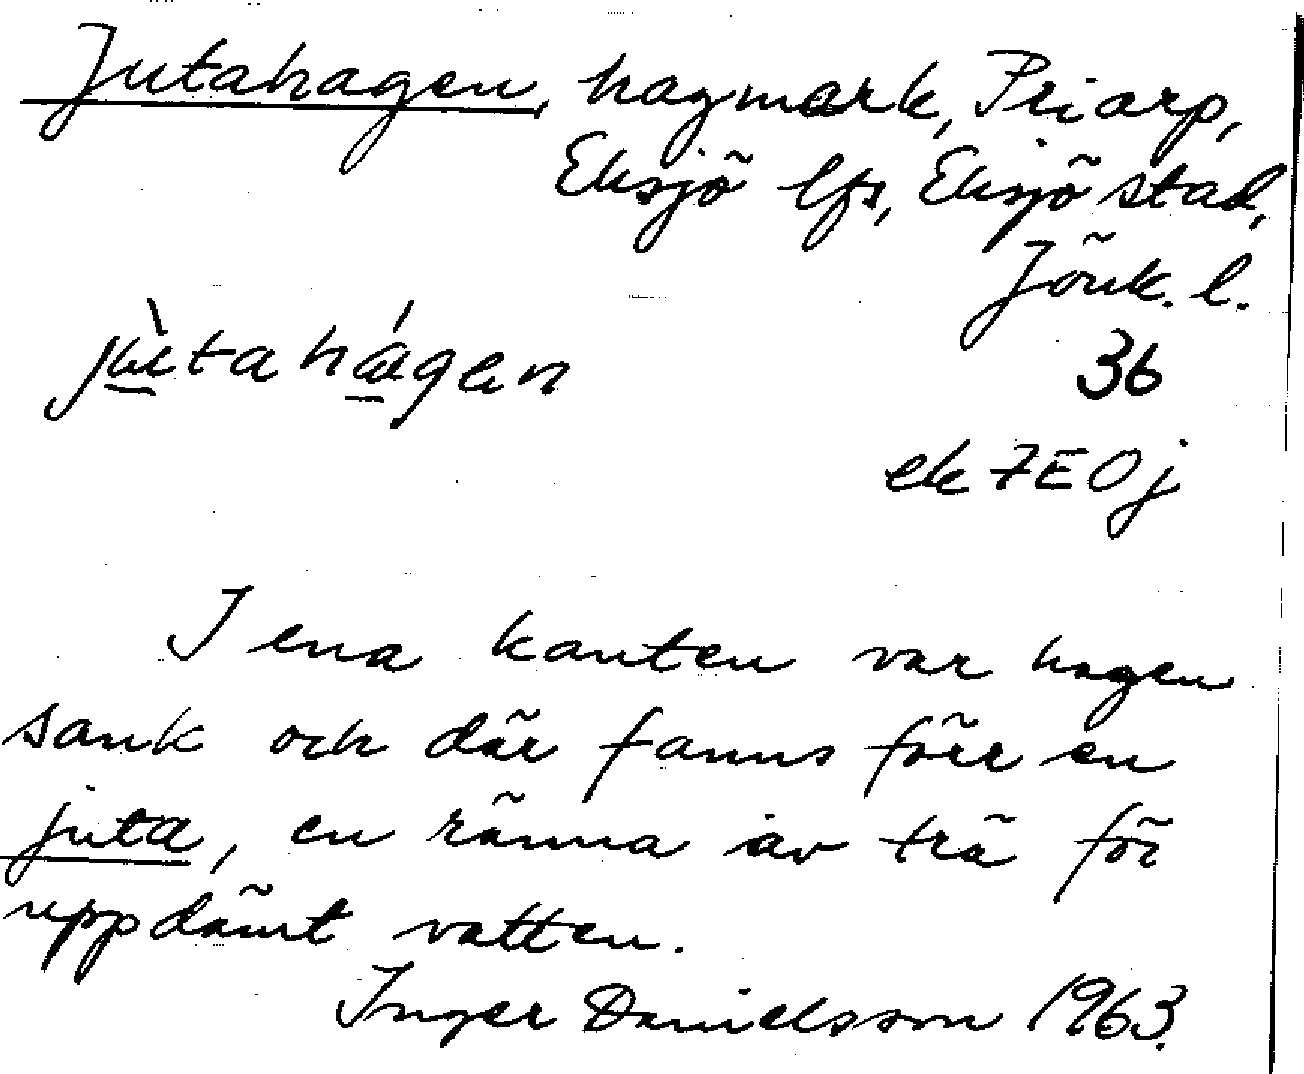 Jutahagen, hagmark, Priarp,
Eksjö lfs, Eksjö stad,
Jönk. l.
jùtahágen
36
ek 7E0j
I ena kanten var hagen
sank och där fanns förr en
juta, en ränna av trä för
uppdämt vatten.
Inger Danielsson 1963.